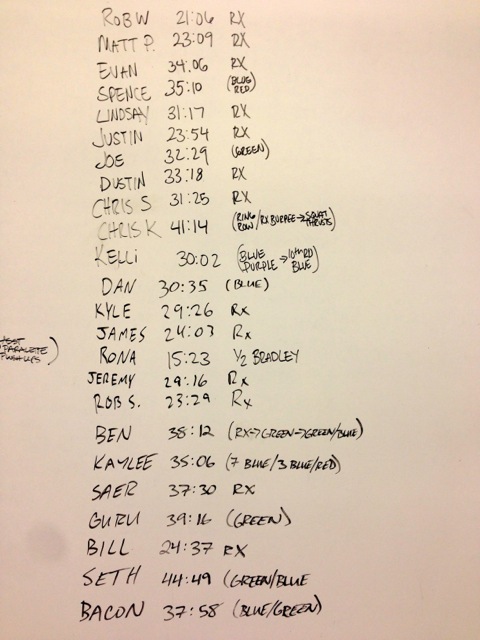 ROB W 21:06 RX
MATT P. 23:09 RX
EVAN 34:06 RX
SPENCE 35:10 (BLUE
RED)
LINDSAY 31:17 RX
JUSTIN 23:54 RX
JOE 32:29 (GREEN)
DUSTIN 33:18 RX
CHRIS S 31:25 RX
CHRIS K 41:14 (RING
ROW/RX BURPEE→SQUAT
THRUSTS)
KELLI 30:02 (BLUE
PURPLE→10th RD
BLUE)
DAN 30:35 (BLUE)
KYLE 29:26 Rx
JAMES 24:03 Rx
ASST
PARALETTE
PUSHUPS)
RONA 15:23 1/2 BRADLEY
JEREMY 29:16 Rx
ROB S. 23:29 Rx
BEN 38:12 (RX→GREEN→GREEN/BLUE)
KAYLEE 35:06 (7 BLUE/3 BLUE/RED)
SAER 37:30 RX
GURU 39:16 (GREEN)
BILL 24:37 RX
SETH 44:49 (GREEN/BLUE
BACON 37:58 (BLUE/GREEN)